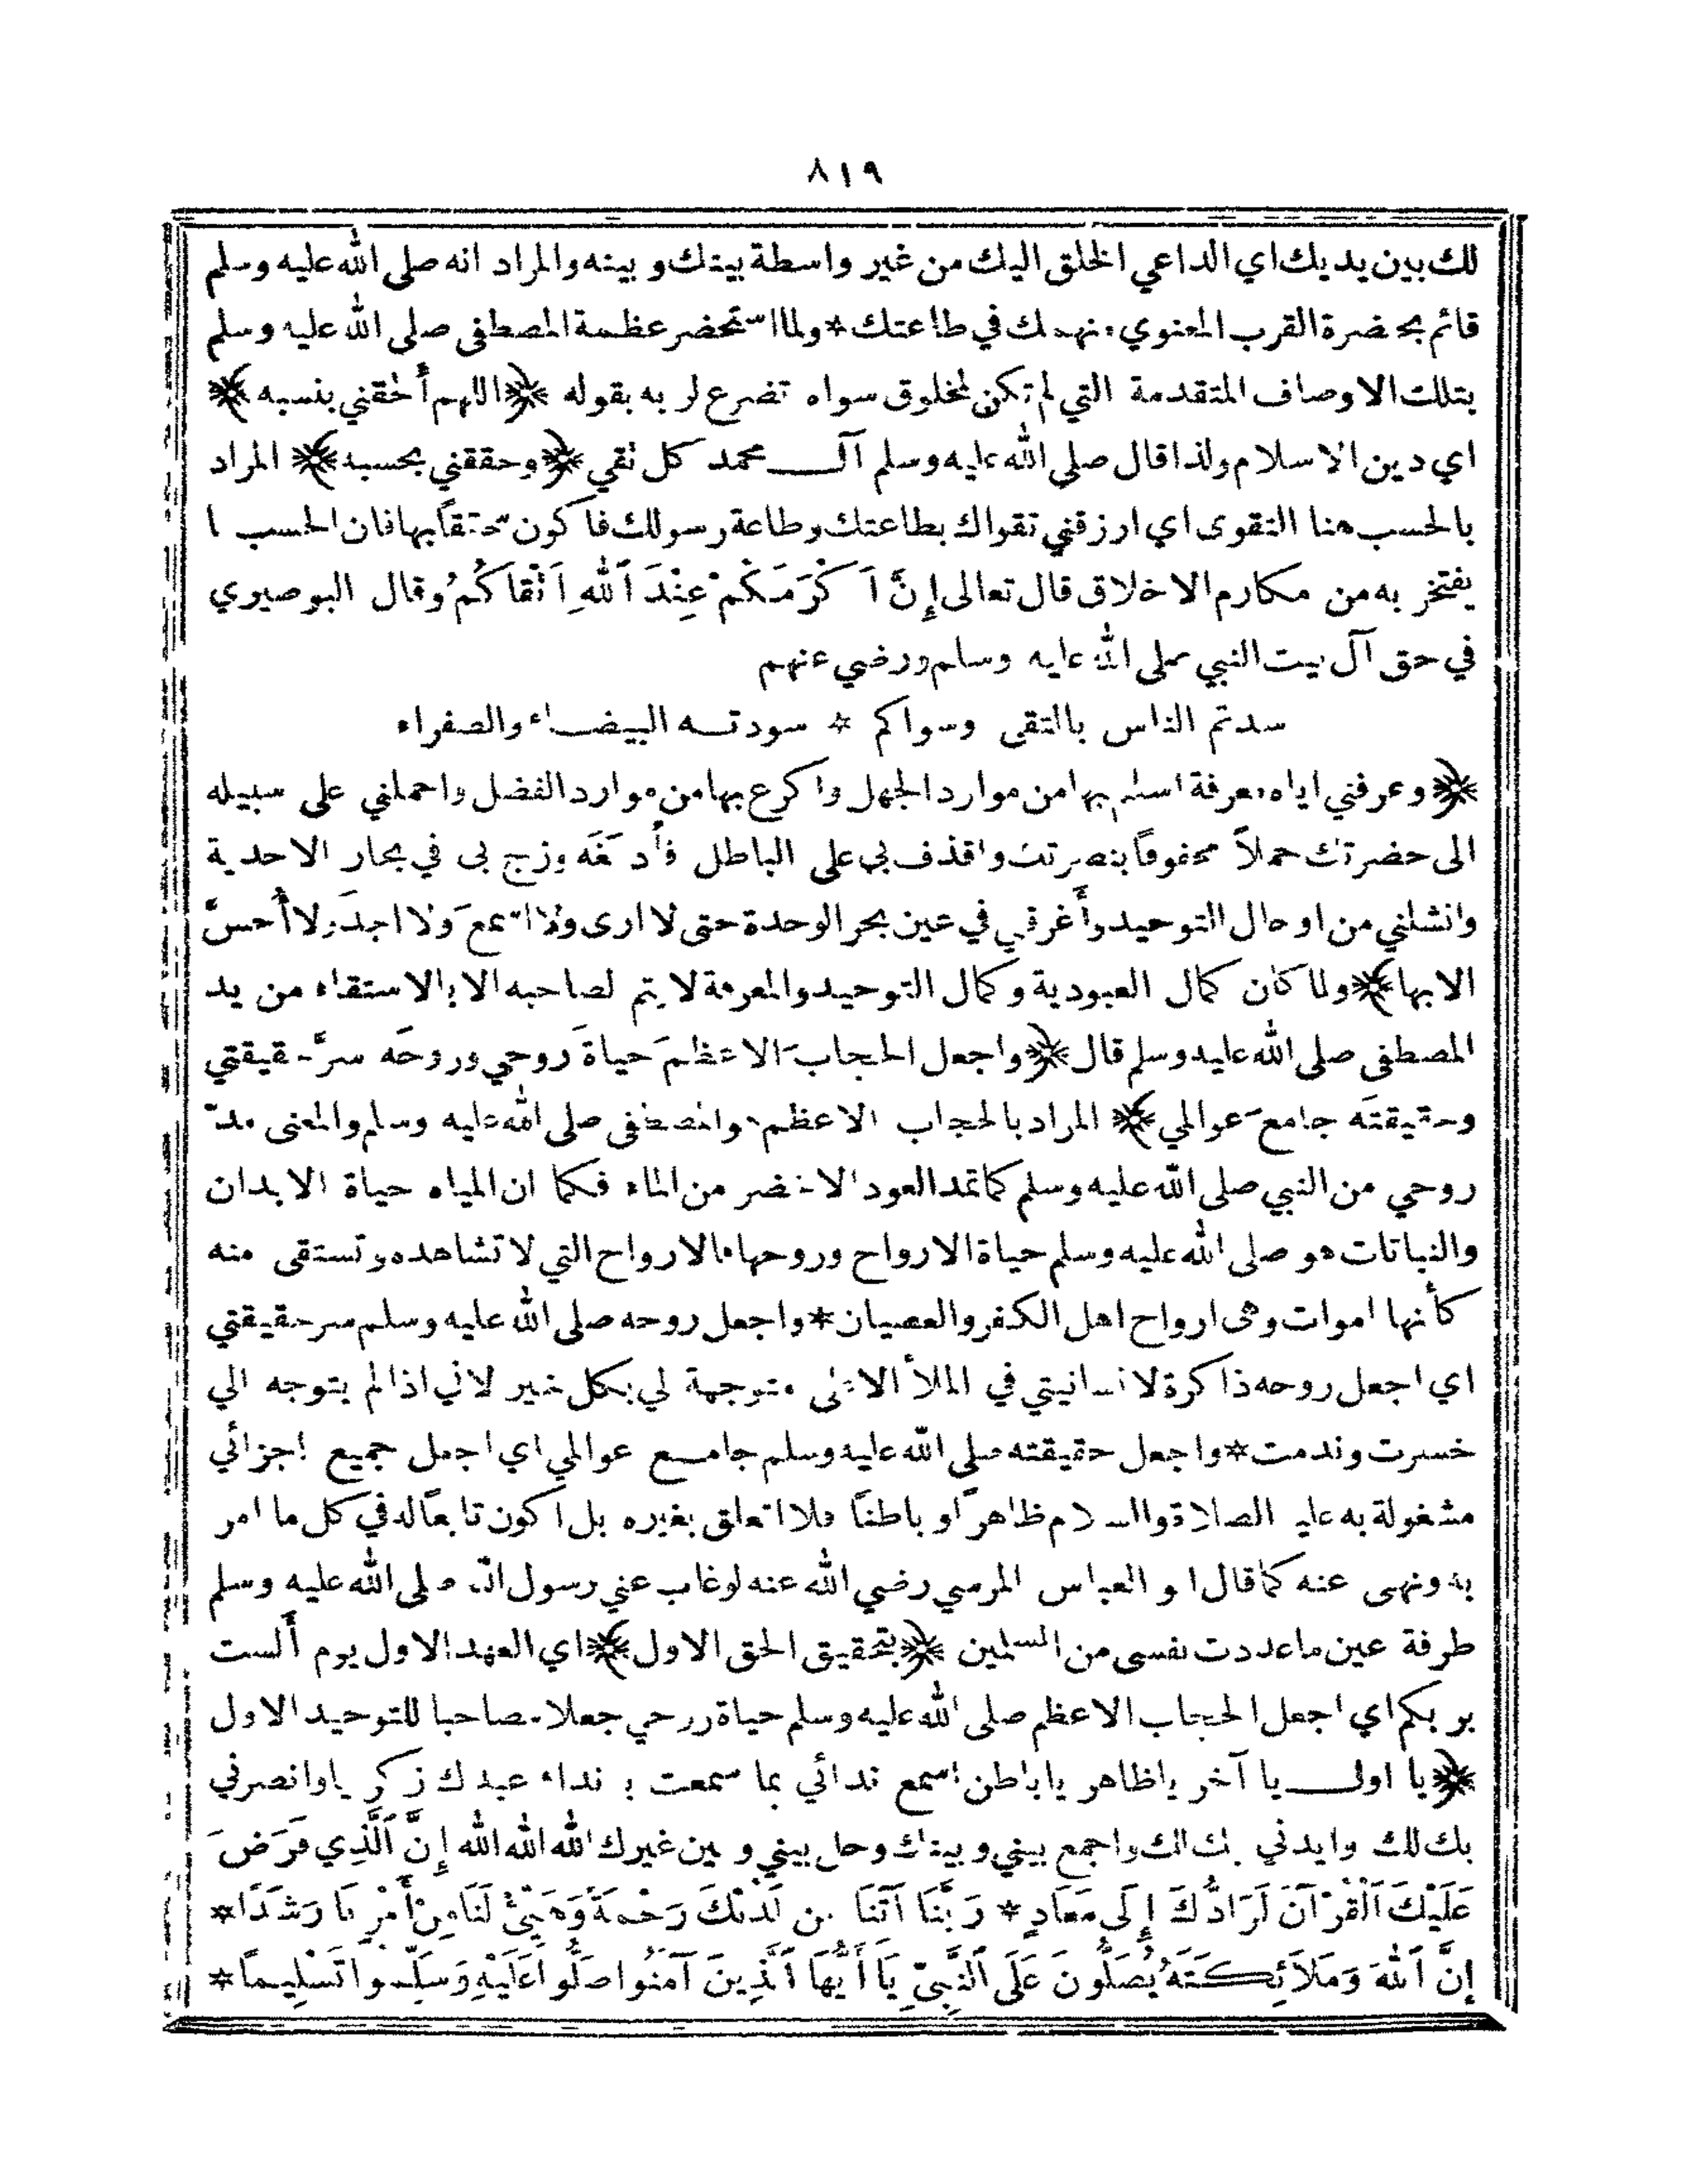 ٨١٩
لك بين يديك اي الداعي الخلق اليك من غير واسطة بينك و بينه والمراد انه صلى الله عليه وسلم
قائم بحضرة القرب المعنوي منهمك في طاعتك * ولما استحضر عظمة المصطفى صلى الله عليه وسلم
بتلك الاوصاف المتقدمة التي لم تكن لمخلوق سواه تضرع لربه بقوله ﴿اللهم أَلحقني بنسبه﴾
اي دين الاسلام ولذا قال صلى الله عليه وسلم آل محمد كل تقي ﴿وحققني بحسبه﴾ المراد
بالحسب هنا التقوى اي ارزقني تقواك بطاعتك وطاعة رسولك فاكون متحققاً بها فان الحسب ا
يفتخر به من مكارم الاخلاق قال تعالى إِنَّ اَكْرَمَكُمْ عِنْدَ ٱللهِ اَتْقَاكُمْ وقال البوصيري
في حق آل بيت النبي صلى الله عليه وسلم ورضي عنهم
سدتم الناس بالتقى وسواكم * سودته البيضاء والصفراء
﴿وعرفني اياه معرفة اسلم بها من موارد الجهل واكرع بها من موارد الفضل واحملني على سبيله
الى حضرتك حملاً محفوفاً بنصرتك واقذف بي على الباطل فأَدمغَه وزج بى في بحار الاحدية
وانشلني من اوحال التوحيد وأَغرقني في عين بحر الوحدة حتى لا ارى ولا اسمعَ ولا اجدَ ولا أُحسَّ
الا بها﴾ ولما كان كمال العبودية وكمال التوحيد والمعرفة لا يتم لصاحبه الا بالاستقاء من يد
المصطفى صلى الله عليه وسلم قال ﴿واجعل الحجابَ الاعظمَ حياةَ روحي وروحَه سرَّ حقيقتي
وحقيقتَه جامعَ عوالمي﴾ المراد بالحجاب الاعظم هو المصطفى صلى الله عليه وسلم والمعنى مدّ
روحي من النبي صلى الله عليه وسلم كما تمد العود الاخضر من الماء فكما ان المياه حياة الابدان
والنباتات هو صلى الله عليه وسلم حياة الارواح وروحها فالارواح التي لا تشاهده وتستقى منه
كأنها اموات وهى ارواح اهل الكفر والعصيان * واجعل روحه صلى الله عليه وسلم سر حقيقتي
اي اجعل روحه ذاكرة لانسانيتي في الملأ الاعلى متوجهة لي بكل خير لاني اذا لم يتوجه الي
خسرت وندمت * واجعل حقيقته صلى الله عليه وسلم جامع عوالمي اي اجعل جميع اجزائي
مشغولة به عليه الصلاة والسلام ظاهراً و باطناً فلا اتعلق بغيره بل اكون تابعاً له في كل ما امر
به ونهى عنه كما قال ابو العباس المرسي رضي الله عنه لو غاب عني رسول الله صلى الله عليه وسلم
طرفة عين ما عددت نفسى من المسلمين ﴿بتحقيق الحق الاول﴾ اي العهد الاول يوم أَلست
بربكم اي اجعل الحجاب الاعظم صلى الله عليه وسلم حياة روحي جعلا مصاحبا للتوحيد الاول
﴿يا اول يا آخر يا ظاهر يا باطن اسمع ندائي بما سمعت به نداء عبدك زكريا وانصرني
بك لك وايدني بك لك واجمع بيني و بينك وحل بيني و بين غيرك الله الله الله إِنَّ ٱلَّذِي فَرَضَ
عَلَيْكَ ٱلْقُرْآنَ لَرَادُّكَ إِلَى مَعَادٍ * رَبَّنَا آتِنَا مِن لَدُنْكَ رَحْمَةً وَهَيِّئْ لَنَا مِنْ أَمْرِنَا رَشَدًا *
إِنَّ ٱللهَ وَمَلَائِكَتَهُ يُصَلُّونَ عَلَى ٱلنَّبِيِّ يَا أَيُّهَا ٱلَّذِينَ آمَنُوا صَلُّوا عَلَيْهِ وَسَلِّمُوا تَسْلِيمًا *